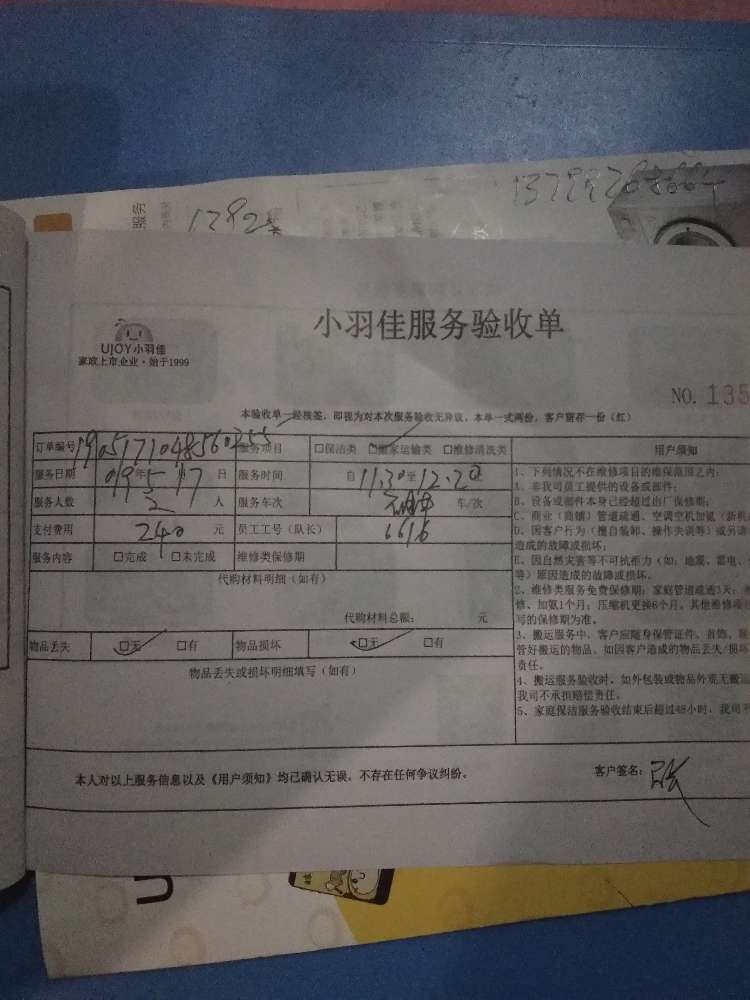 服务
1292
小羽佳服务验收单
UJOY小羽佳
家政上市企业·始于1999
NO. 135
本验收单一经核签，即视为对本次服务验收无异议，本单一式两份，客户留存一份（红）
订单编号 服务项目 □保洁类 □搬家运输类 □维修清洗类
服务日期 19年5月17日 服务时间 自11.30至12.20
服务人数 2人 服务车次 车/次
支付费用 240元 员工工号（队长） 6616
服务内容 □完成 □未完成 维修类保修期
代购材料明细（如有）
代购材料总额： 元
物品丢失 □无 □有 物品损坏 □无 □有
物品丢失或损坏明细填写（如有）
用户须知
1、下列情况不在维修项目的维保范围之内：
A、非我司员工提供的设备或部件；
B、设备或部件本身已经超过出厂保修期；
C、商业（商铺）管道疏通、空调空机加氟（新机
D、因客户行为（擅自装卸、操作失误等）或另请
造成的故障或损坏；
E、因自然灾害等不可抗拒力（如：地震、雷电、
等）原因造成的故障或损坏。
2、维修类服务免费保修期：家庭管道疏通3天；
修、加氟1个月；压缩机更换6个月。其他维修项
写的保修期为准。
3、搬运服务中，客户应随身保管证件、首饰、
管好搬运的物品。如因客户造成的物品丢失/损坏
责任。
4、搬运服务验收时，如外包装或物品外观无
我司不承担赔偿责任。
5、家庭保洁服务验收结束后超过48小时，我司不
本人对以上服务信息以及《用户须知》均已确认无误，不存在任何争议纠纷。
客户签名：
U